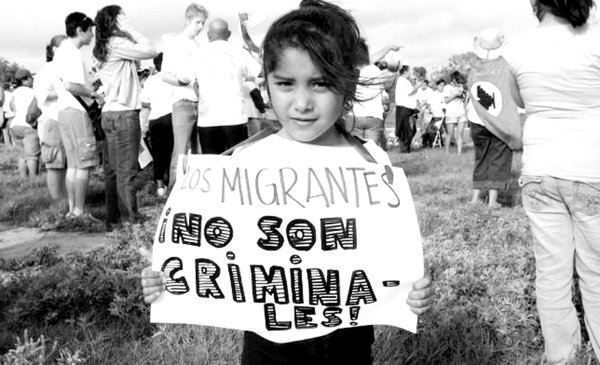 LOS MIGRANTES
¡NO SON
CRIMINA-
LES!